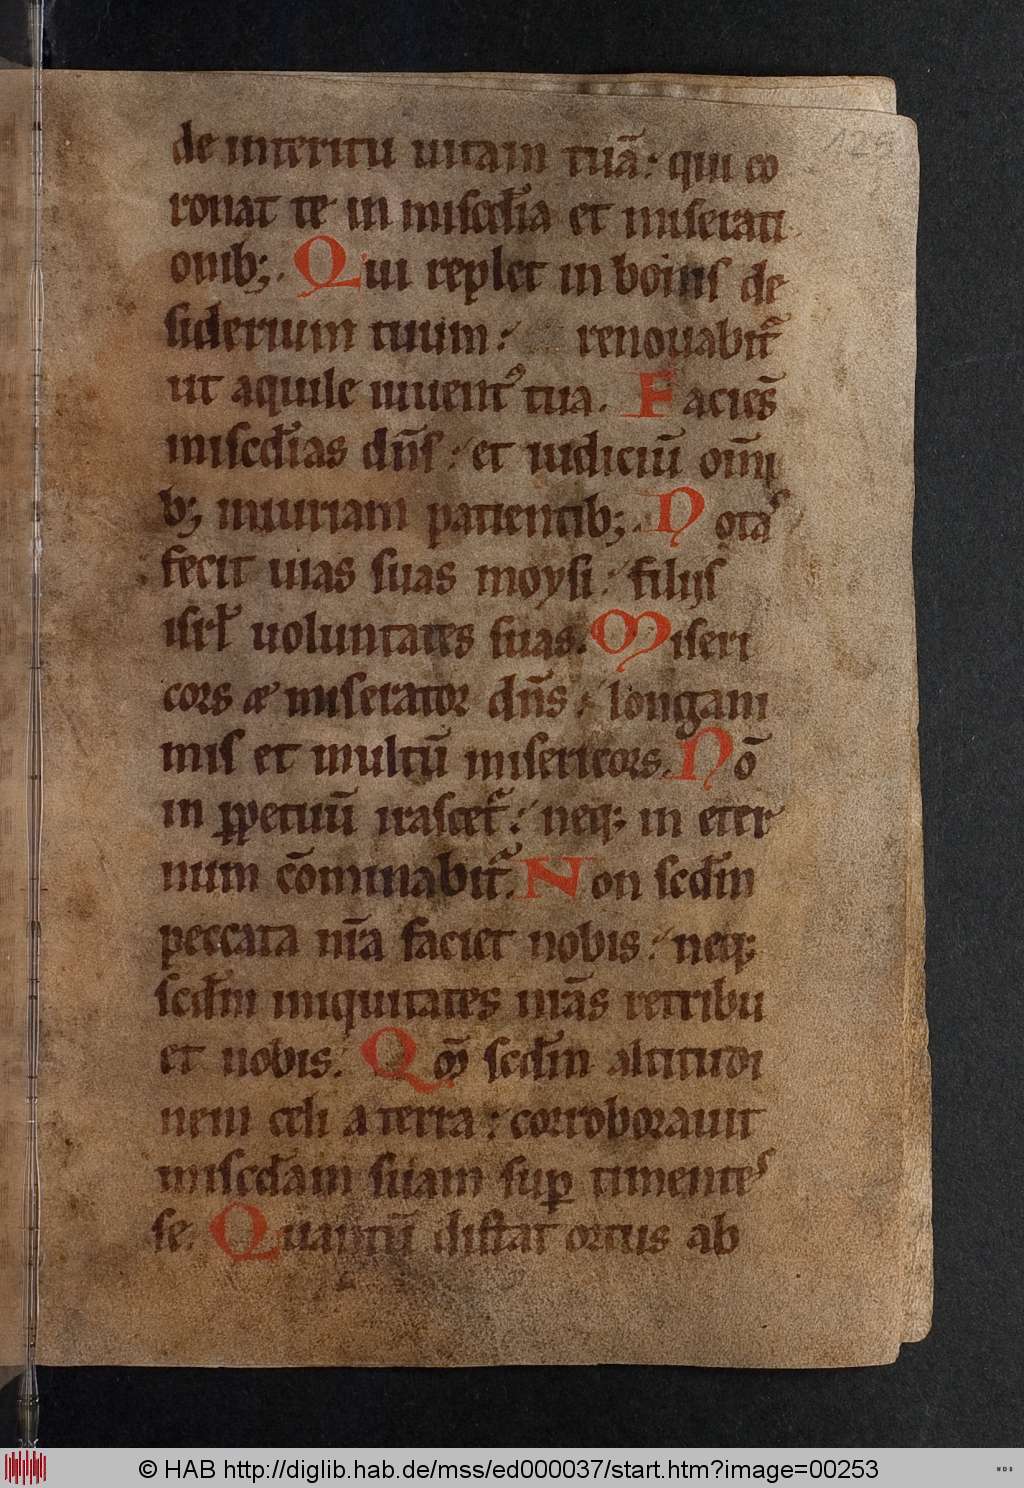 125
de interitu uitam tuā: qui co
ronat te in misc̄dia et miserati
onib;. Qui replet in bonis de
siderium tuum: renouabit᷑
ut aquile iuuent᷒ tua. Facies̄
misc̄dias dn̄s: et iudiciū om̄i
b; iniuriam patientib;. Notas
fecit uias suas moysi: filijs
isrl̄ uoluntates suas. Miseri
cors & miserator dn̄s: longani
mis et multū misericors. Nō
in ꝑpetuū irascet᷑: neq; in eter
num cōminabit᷑. Non scd̄m
peccata nr̄a faciet nobis: neq;
scd̄m iniquitates nr̄as retribu
et nobis. Qm̄ scd̄m altitudi
nem celi a terra: corroborauit
misc̄dam suam suꝑ timentes
se. Quantū distat ortus ab
© HAB http://diglib.hab.de/mss/ed000037/start.htm?image=00253